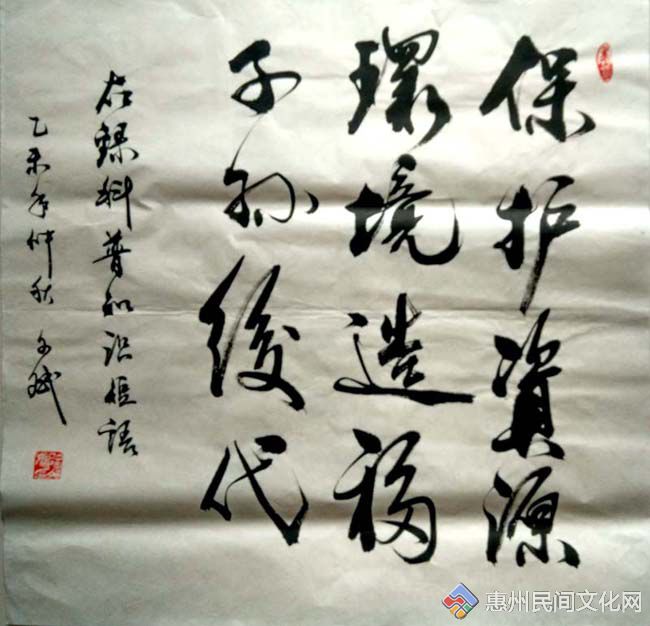 保护資源
環境造福
子孙後代
右録科普知识标语
乙未年仲秋
惠州民间文化网